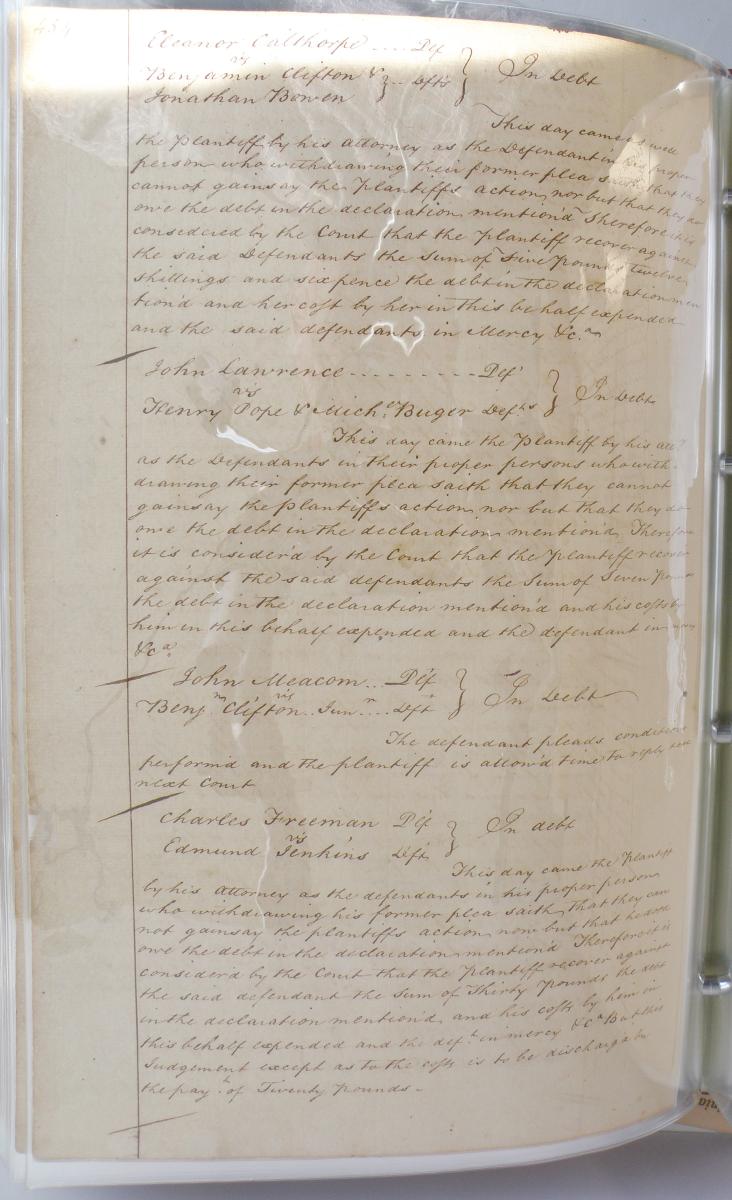 454
Eleanor Calthorpe .... Plf
vs
Benjamin Clifton & } .. Defts } In Debt
Jonathan Bowen
This day came as well
the Plantiff by his attorney as the Defendant in his proper
person who withdrawing their former plea saith that they
cannot gainsay the Plantiffs action nor but that they do
owe the debt in the declaration mention'd Therefore it is
considered by the Court that the Plantiff recover against
the said Defendants the Sum of Five Pounds Twelve
shillings and sixpence the debt in the declaration men
tion'd and her cost by her in this behalf expended
and the said defendants in Mercy &c.a
John Lawrence .......... Plf
vs
Henry Pope & Mich.l Buger Defts } In Debt
This day came the Plantiff by his att.
as the Defendants in their proper persons who with
drawing their former plea saith that they cannot
gainsay the plantiffs action nor but that they do
owe the debt in the declaration mention'd Therefore
it is consider'd by the Court that the Plantiff recover
against the said defendants the Sum of Seven Pounds
the debt in the declaration mention'd and his costs by
him in this behalf expended and the defendant in mercy
&c.a
John Meacom ... Plf
vs
Benj.m Clifton .. Jun.r .... Deft } In Debt
The defendant pleads condition
perform'd and the plantiff is allow'd time to reply
next Court
Charles Freeman Plf
vs
Edmund Jenkins Deft } In debt
This day came the Plantiff
by his attorney as the defendants in his proper person
who withdrawing his former plea saith that they can
not gainsay the plantiffs action nor but that he doth
owe the debt in the declaration mention'd Therefore it is
consider'd by the Court that the Plantiff recover against
the said defendant the Sum of Thirty Pounds the debt
in the declaration mention'd and his costs by him in
this behalf expended and the def.t in mercy &c.a But this
Judgement except as to the costs is to be discharg'd by
the pay.t of Twenty Pounds -